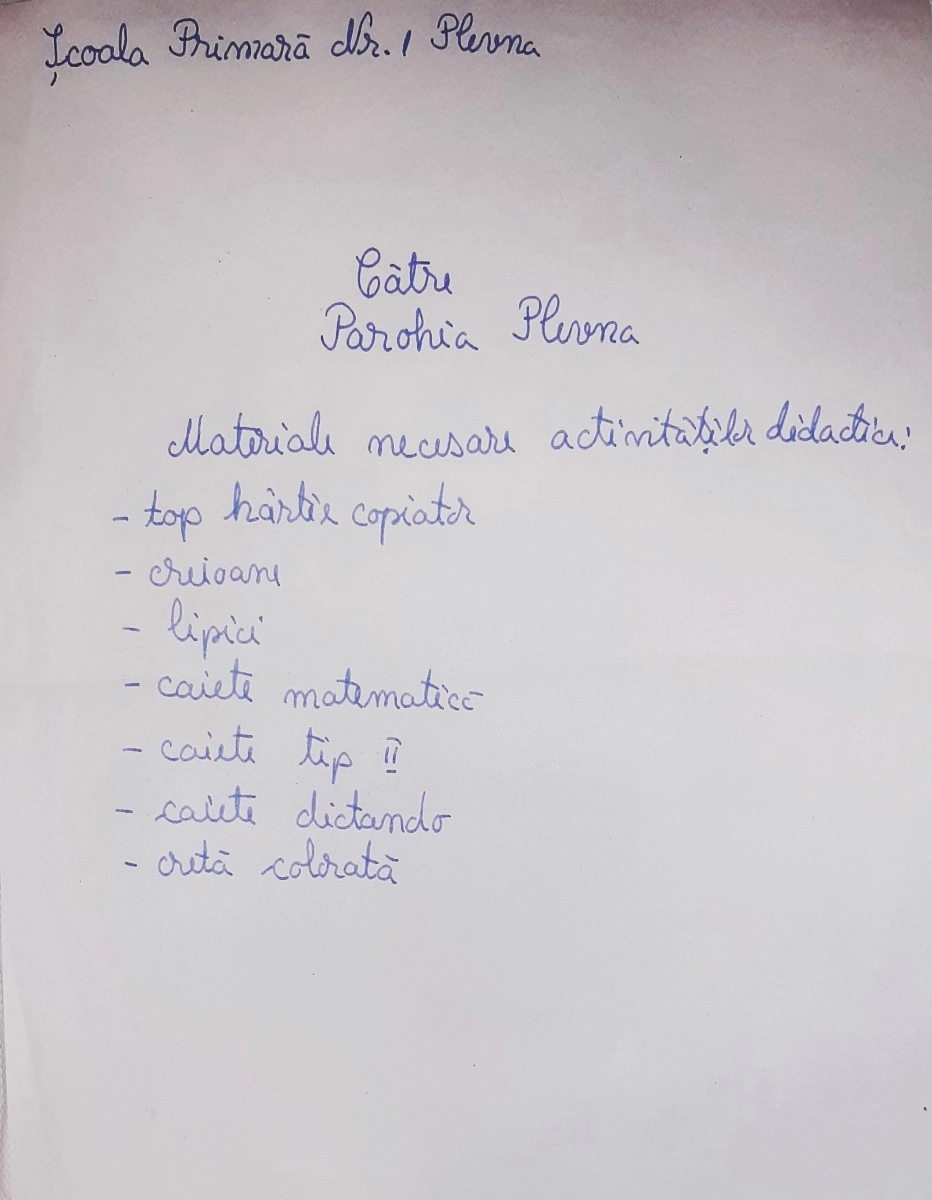 Școala Primară Nr. 1 Plevna
Către
Parohia Plevna
Materiale necesare activităților didactice:
- top hârtie copiator
- creioane
- lipici
- caiete matematică
- caiete tip II
- caiete dictando
- cretă colorată